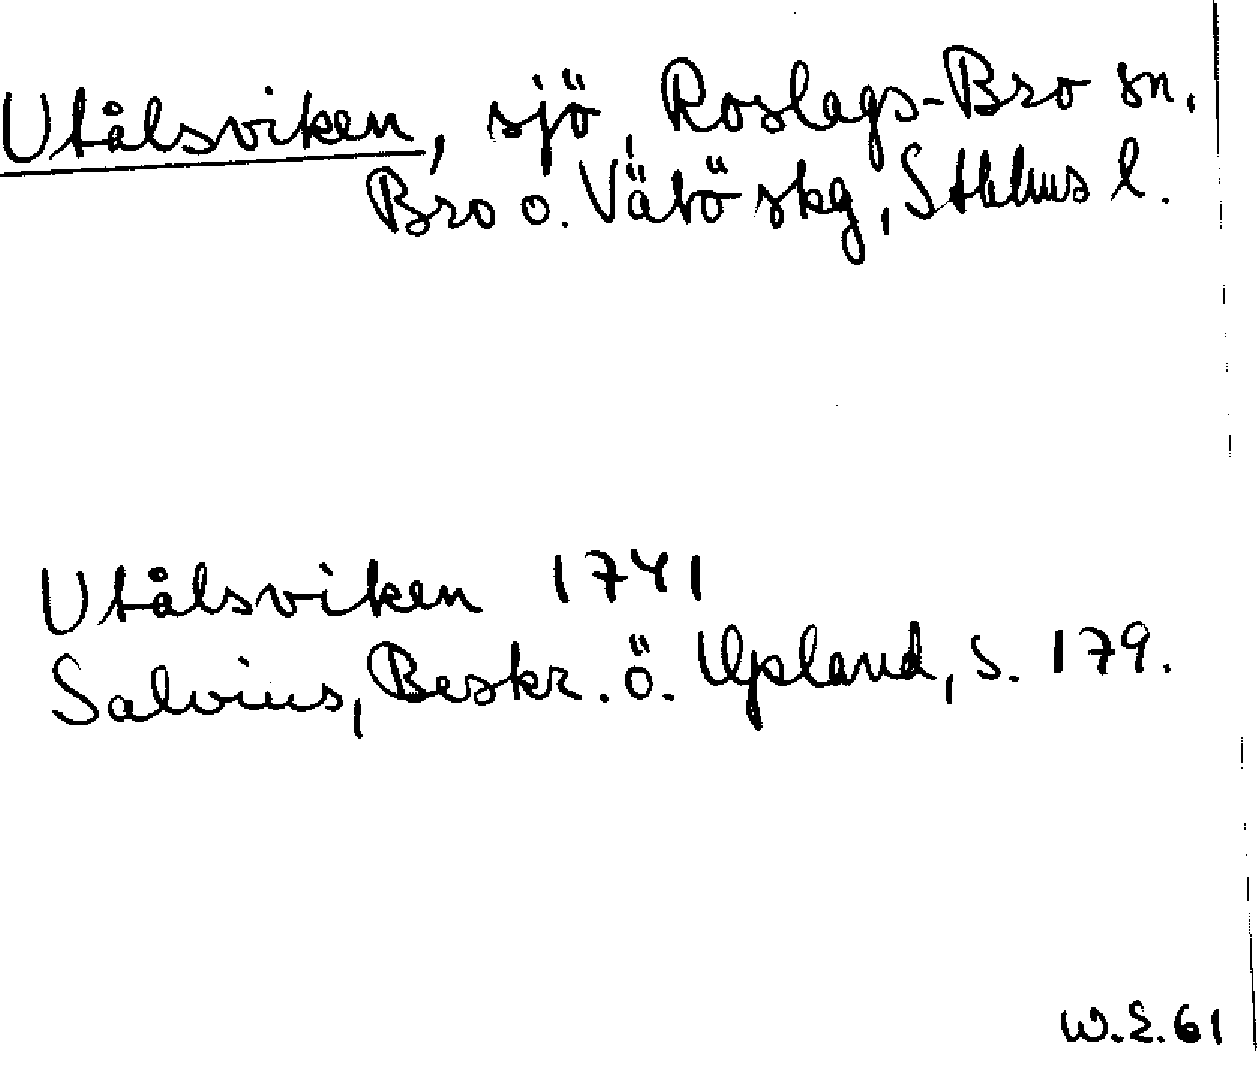 Utålsviken, sjö, Roslags-Bro sn.
Bro o. Vätö skg, Sthlms l.
Utålsviken 1741
Salvius, Beskr. ö. Upland, s. 179.
W.E.61